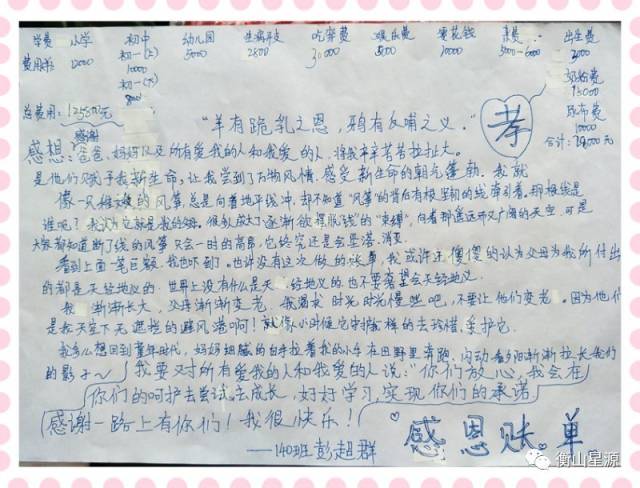 学费 小学 初中 幼儿园 生病开支 吃穿费 娱乐费 零花钱 出生费
费用栏: 12000 初一(上) 5000 2800 30000 10000 5000-6000 2000
10000 奶粉费
初一(下) 15000
尿布费
10000
总费用: 元 合计:
“羊有跪乳之恩,鸦有反哺之义。” 孝
感谢
感想:爸爸、妈妈以及所有爱我的人和我爱的人,将我辛辛苦苦拉扯大。
是他们赋予我新生命,让我学到了万物风情,感受新生命的朝气蓬勃。我就
像一只稚嫩的风筝,总是向着地平线冲,却不知道“风筝”的背后有极坚韧的线牵引着。那根线是
谁呢?我认为它就是我的爸妈。但我放大了逐渐欲摆脱“线”的“束缚”,向着那遥远而又广阔的天空,可是
大家都知道断了线的风筝只会一时的高昂,它终究还是会坠落、消夏
看到上面一笔巨额,我也吓到了。也许没有这次做的账单,我或许还傻傻的认为父母为我所付出
的都是天经地义的,世界上没有什么是天经地义的,也不要奢望会天经地义。
我渐渐长大,父母渐渐变老,我渴求时光时光慢些吧,不要让他们变老。因为他们
是我天空下无遮挡的避风港啊!就像小时候它守护我样的去珍惜、手护它。
我多么想回到童年时代,妈妈细腻的白手拉着我的小手在田野里奔跑,闪动着夕阳渐渐拉长我们
的影子~我要对所有爱我的人和我爱的人说:“你们放心,我会在
你们的呵护去尝试、去成长,好好学习,实现你们的承诺
感谢一路上有你们!我很快乐!
感恩账单
——140班 彭超群
衡山星源